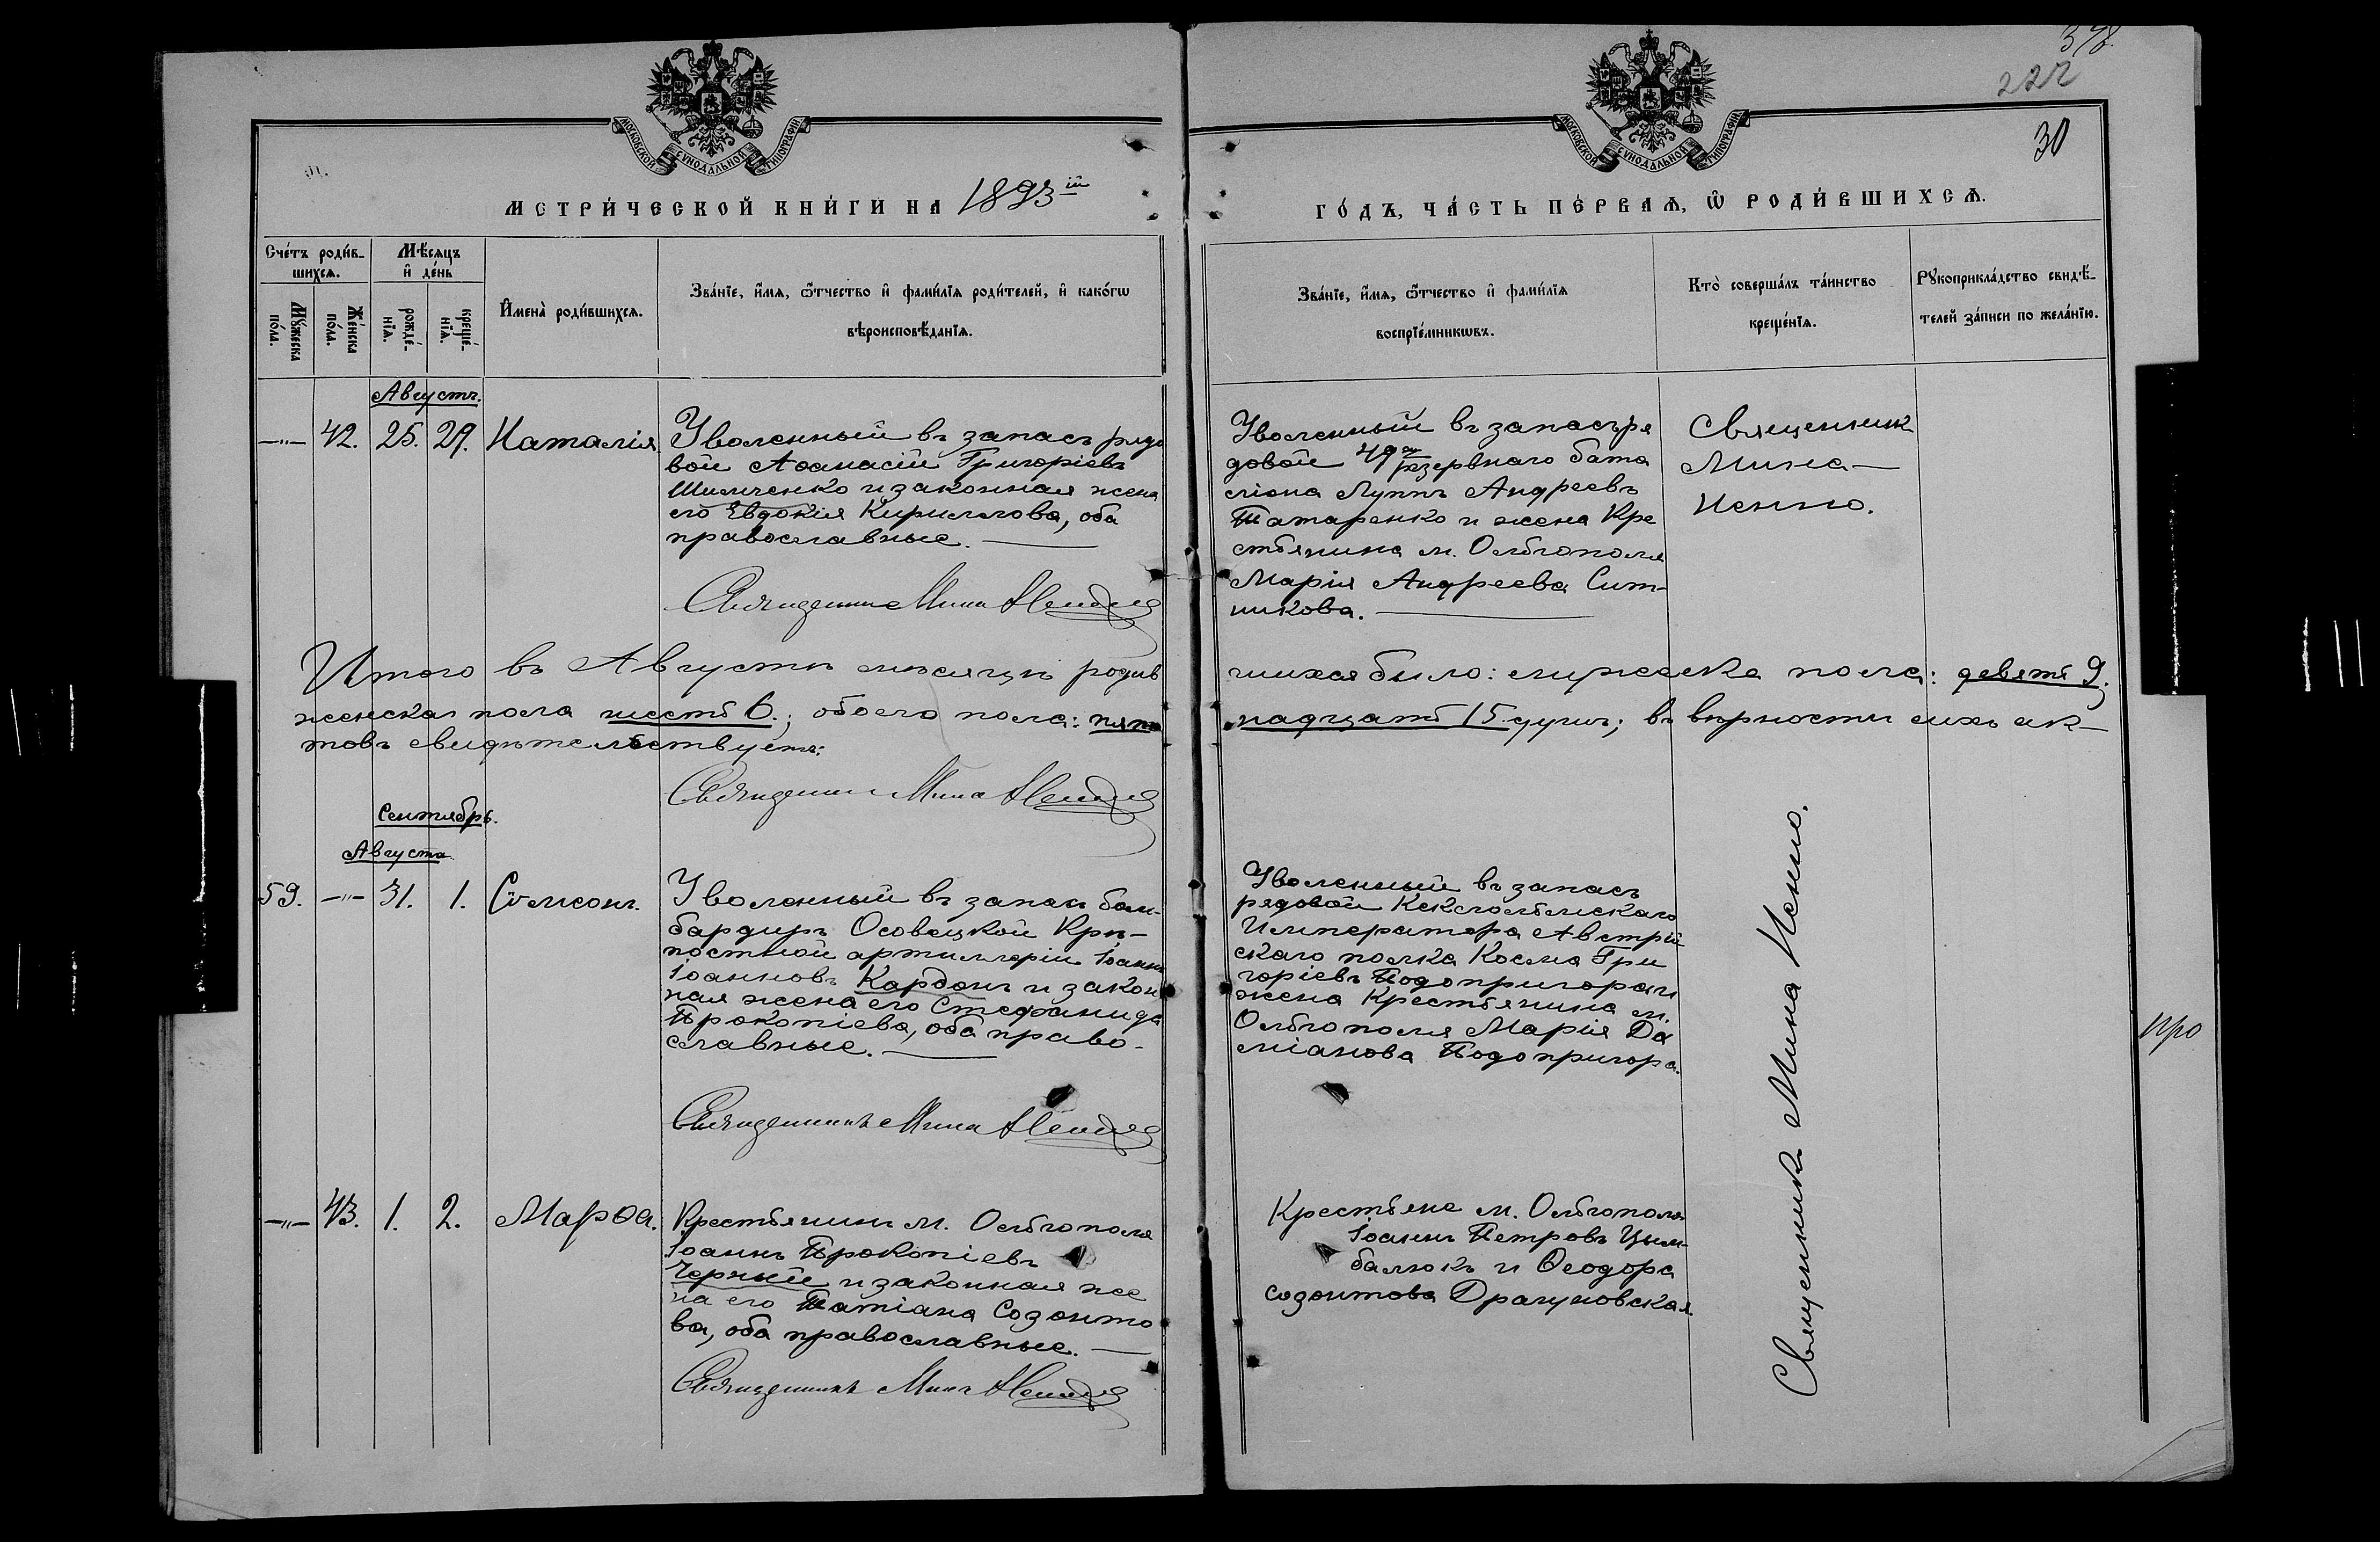 398.
222
30
МОСКОВСКОЙ СѴНОДАЛЬНОЙ ТИПОГРАФІИ
МОСКОВСКОЙ СѴНОДАЛЬНОЙ ТИПОГРАФІИ
МЕТРИ́ЧЕСКОЙ КНИ́ГИ НА 1893ій
ГО́ДЪ, ЧА́СТЬ ПЕ́РВАѦ, Ѽ РОДИ́ВШИХСѦ.
Сче́тъ роди́в-
шихсѧ.
Мꙋ́жеска по́ла.
Же́нска по́ла.
Мѣ́сѧцъ
и҆ де́нь
рожде́-
нїѧ.
креще́-
нїѧ.
И҆мена̀ роди́вшихсѧ.
Зва́нїе, и҆́мѧ, ѻ҆́тчество и҆ фами́лїѧ роди́телей, и҆ како́гѡ
вѣроисповѣ́данїѧ.
Зва́нїе, и҆́мѧ, ѻ҆́тчество и҆ фами́лїѧ
воспрїе́мникѡвъ.
Кто̀ соверша́лъ та́инство
креще́нїѧ.
Рꙋкоприкла́дство свидѣ́-
телей за́писи по жела́нїю.
Августъ.
—"— 42. 25. 29. Наталія.
Уволенный въ запасъ рядо
вой Аѳанасій Григоріевъ
Шимченко и законная жена
его Евдокія Кириллова, оба
православные. —
Священникъ Мина
Уволенный въ запасъ ря
довой 49го резервнаго бата
ліона Луппъ Андреевъ
Татаренко и жена Кре
стьянина м. Ольгополя
Марія Андреева Сит-
никова. —
Священникъ
Мина —
Ненно.
Итого въ Августѣ мѣсяцѣ родив
шихся было: мужеска пола: девять 9.
женска пола шесть 6.; обоего пола: пят
надцать 15 душъ; въ вѣрности сихъ ак-
товъ свидѣтельствуетъ:
Священникъ Мина
Сентябрь.
Августа
59. —"— 31. 1. Сѵмеонъ.
Уволенный въ запасъ бом-
бардиръ Осовецкой Крѣ-
постной артиллеріи Іоаннъ
Іоанновъ Кордонъ и закон
ная жена его Стефанида
Прокопіева, оба право-
славные. —
Священникъ Мина
Уволенный въ запасъ
рядовой Кексгольмскаго
Императора Австрій
скаго полка Косма Гри
горіевъ Подопригора и
жена Крестьянина м.
Ольгополя Марія Да
міанова Подопригора.
Священникъ Мина Ненно.
про
—"— 43. 1. 2. Марѳа.
Крестьянинъ м. Ольгополя
Іоаннъ Прокопіевъ
Черный и законная же
на его Татіана Созонто
ва, оба православные. —
Священникъ Мина
Крестьяне м. Ольгополя
Іоаннъ Петровъ Цым-
балюкъ и Ѳеодора
Созонтова Драгуновская.